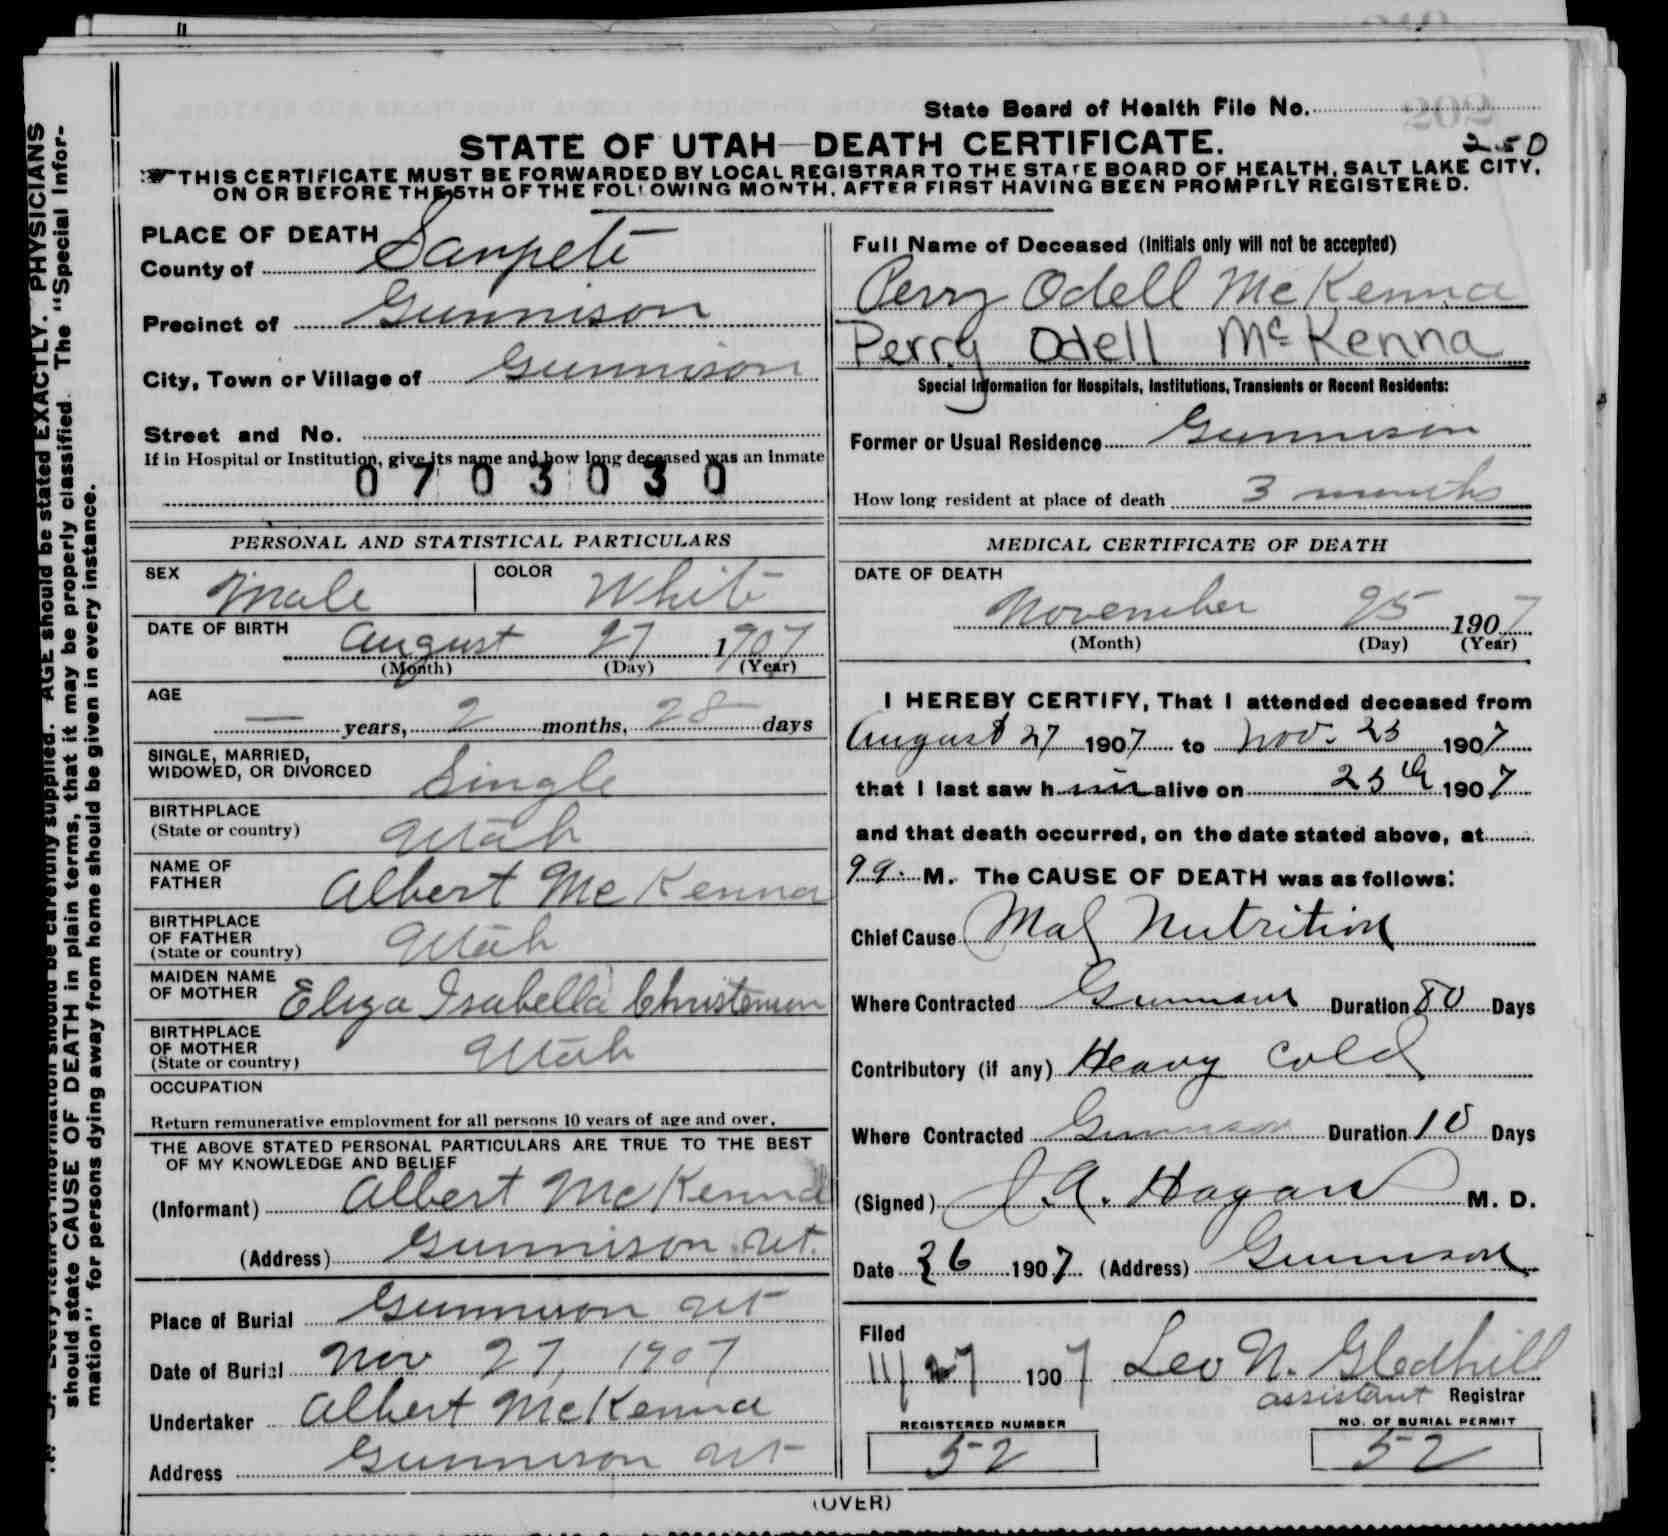 State Board of Health File No. 202
250
STATE OF UTAH—DEATH CERTIFICATE.
THIS CERTIFICATE MUST BE FORWARDED BY LOCAL REGISTRAR TO THE STATE BOARD OF HEALTH, SALT LAKE CITY,
ON OR BEFORE THE 5TH OF THE FOLLOWING MONTH, AFTER FIRST HAVING BEEN PROMPTLY REGISTERED.
should be stated EXACTLY. PHYSICIANS
should state CAUSE OF DEATH in plain terms, that it may be properly classified. The "Special Infor-
mation" for persons dying away from home should be given in every instance.
PLACE OF DEATH
County of Sanpete
Precinct of Gunnison
City, Town or Village of Gunnison
Street and No.
If in Hospital or Institution, give its name and how long deceased was an Inmate
0703030
PERSONAL AND STATISTICAL PARTICULARS
SEX Male COLOR White
DATE OF BIRTH August 27 1907
(Month) (Day) (Year)
AGE
— years, 2 months, 28 days
SINGLE, MARRIED,
WIDOWED, OR DIVORCED Single
BIRTHPLACE
(State or country) Utah
NAME OF
FATHER Albert McKenna
BIRTHPLACE
OF FATHER
(State or country) Utah
MAIDEN NAME
OF MOTHER Eliza Isabella Christensen
BIRTHPLACE
OF MOTHER
(State or country) Utah
OCCUPATION
Return remunerative employment for all persons 10 years of age and over.
THE ABOVE STATED PERSONAL PARTICULARS ARE TRUE TO THE BEST
OF MY KNOWLEDGE AND BELIEF
(Informant) Albert McKenna
(Address) Gunnison Ut.
Place of Burial Gunnison Ut
Date of Burial Nov 27, 1907
Undertaker Albert McKenna
Address Gunnison Ut
Full Name of Deceased (Initials only will not be accepted)
Perry Odell McKenna
Perry Odell McKenna
Special Information for Hospitals, Institutions, Transients or Recent Residents:
Former or Usual Residence Gunnison
How long resident at place of death 3 months
MEDICAL CERTIFICATE OF DEATH
DATE OF DEATH
November 25 1907
(Month) (Day) (Year)
I HEREBY CERTIFY, That I attended deceased from
August 27 1907 to Nov. 25 1907
that I last saw him alive on 25th 1907
and that death occurred, on the date stated above, at
9 a. M. The CAUSE OF DEATH was as follows:
Chief Cause Mal Nutrition
Where Contracted Gunnison Duration 80 Days
Contributory (if any) Heavy Cold
Where Contracted Gunnison Duration 10 Days
(Signed) J. A. Hagan M. D.
Date 26 1907 (Address) Gunnison
Filed
11/27 1907 Leo N. Gledhill
assistant Registrar
REGISTERED NUMBER
52
NO. OF BURIAL PERMIT
52
(OVER)